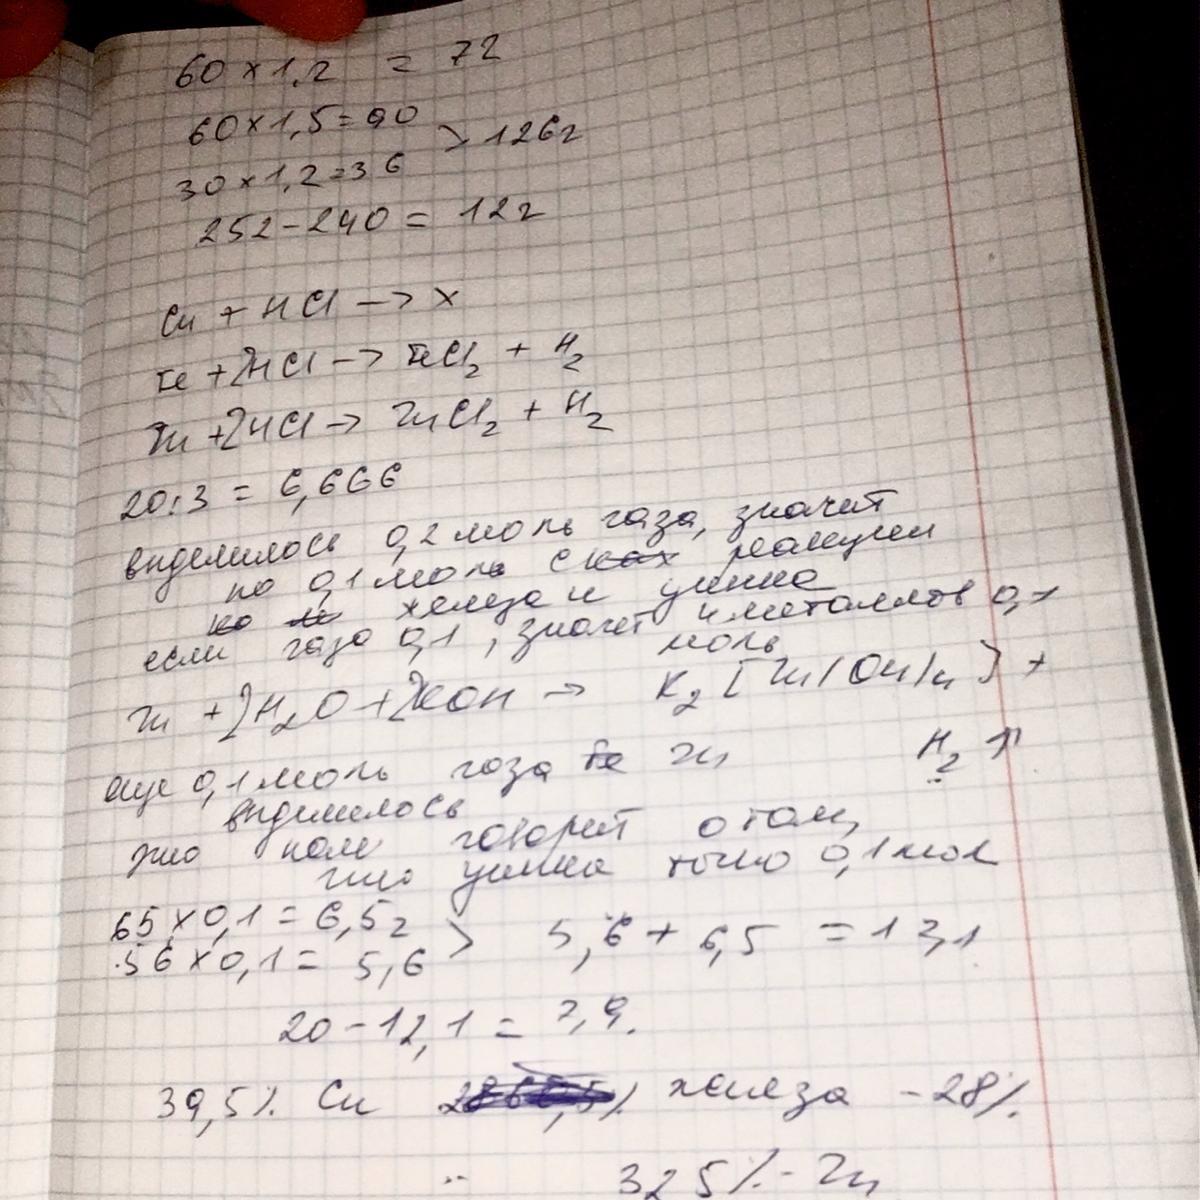 60 × 1,2 = 72
60 × 1,5 = 90
> 126г
30 × 1,2 = 36
252 - 240 = 12г
Cu + HCl → X
Fe + 2HCl → FeCl2 + H2
Zn + 2HCl → ZnCl2 + H2
20:3 = 6,666
выделилось 0,2 моль газа, значит
по 0,1 моль с реакции
железа и цинка
если газа 0,1, значит и металлов 0,1
моль
Zn + 2H2O + 2KOH → K2[Zn(OH)4] +
H2↑
еще 0,1 моль газа Zn
выделилось
что нам говорит о том,
что цинка точно 0,1 мол
65 × 0,1 = 6,5г
56 × 0,1 = 5,6
> 5,6 + 6,5 = 12,1
20 - 12,1 = 7,9.
39,5% Cu железа - 28%
32,5% - Zn